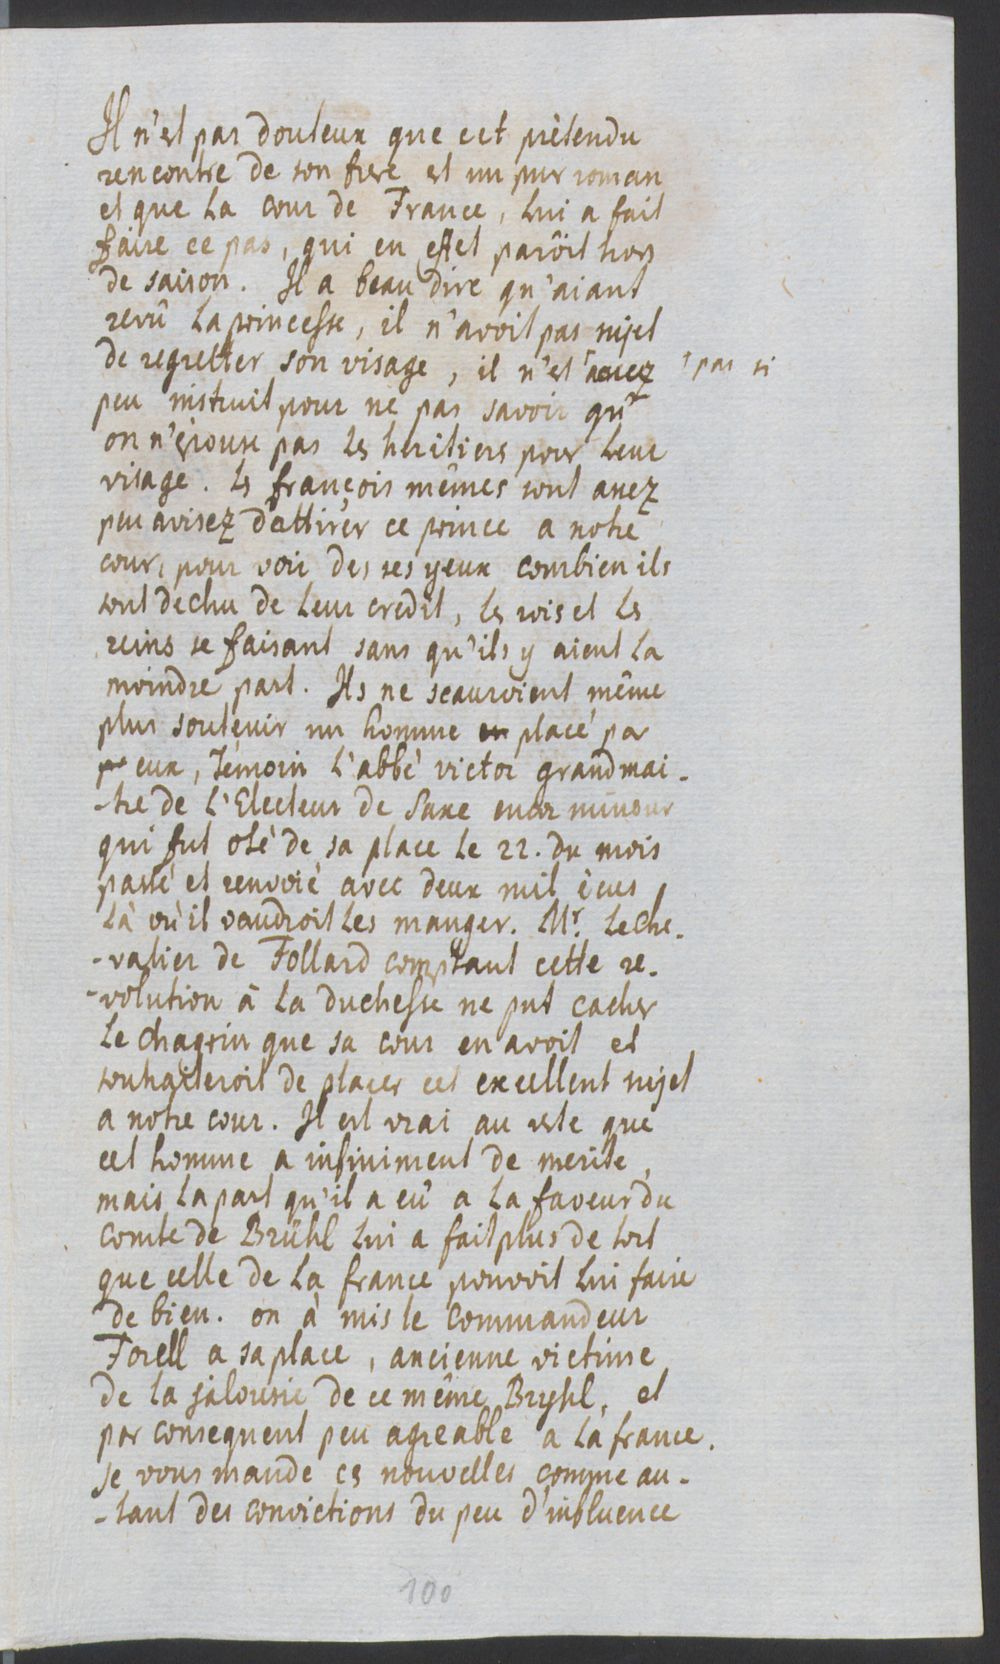 Il n'est pas douteux que cet prètendu
rencontre de son frere est un pur roman
et que la cour de France, lui a fait
faire ce pas, qui en effet parôit hors
de saison. Il a beau dire qu'aiant
revû la princesse, il n'avoit pas sujet
de regretter son visage, il n'est assez pas si
peu instruit pour ne pas savoir qu'
on n'épouse pas les heritiers pour leur
visage. Les françois mêmes sont assez
peu avisez d'attirer ce prince a notre
cour, pour voir des ses yeux combien ils
sont dechu de leur credit, les rois et les
reins se faisant sans qu'ils y aient la
moindre part. Ils ne scauroient même
plus soutenir un homme en placé par
eux, Témoin l'abbé victor grandmai-
-tre de l'Electeur de Saxe encor mineur
qui fut oté de sa place le 22. du mois
passé et renvoié avec deux mil écus
là où il voudroit les manger. Mr. le che-
-valier de Follard comptant cette re-
-volution à la duchesse ne put cacher
le chagrin que sa cour en avoit et
souhaiteroit de placer cet excellent sujet
a notre cour. Il est vrai au reste que
cet homme a infiniment de merite,
mais la part qu'il a eû a la faveur du
comte de Brühl lui a fait plus de tort
que celle de la france pouvoit lui faire
de bien. on à mis le commandeur
Forell a sa place, ancienne victime
de la jalousie de ce même Bryhl, et
par consequent peu agreable a la france.
Je vous mande ces nouvelles comme au-
-tant des convictions du peu d'influence
100